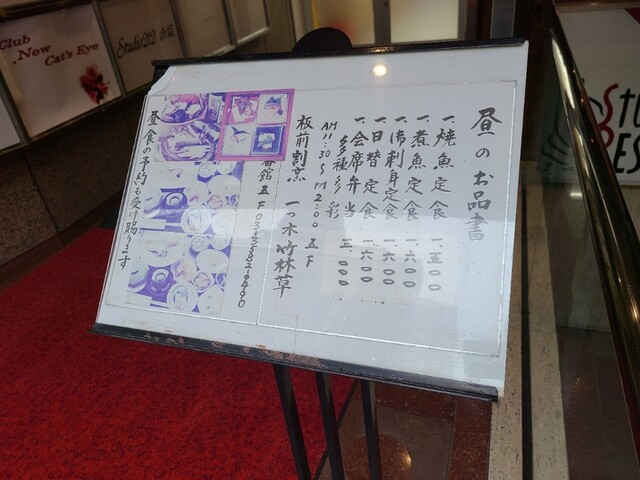 Club
New
Cat's Eye
Studio212 赤坂
昼のお品書
一、焼魚定食 一、五〇〇
一、煮魚定食 一、六〇〇
一、御刺身定食 一、六〇〇
一、日替定食 一、六〇〇
一、会席弁当 三、〇〇〇
多種多彩
AM11:30~PM2:00 五F
板前割烹 一つ木 竹林草
番館五F 03-3582-6490
昼食の予約も受け賜ります